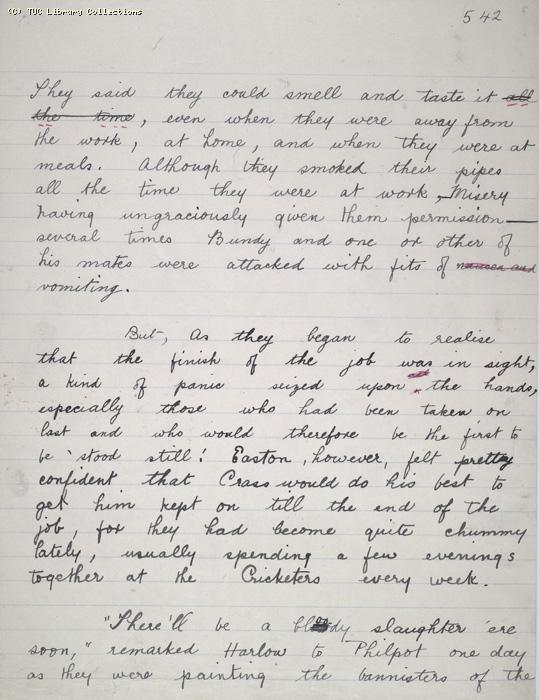 (C) TUC Library Collections
542
They said they could smell and taste it all
the time, even when they were away from
the work, at home, and when they were at
meals. Although they smoked their pipes
all the time they were at work, Misery
having ungraciously given them permission—
several times Bundy and one or other of
his mates were attacked with fits of nausea and
vomiting.
But, as they began to realise
that the finish of the job was in sight,
a kind of panic seized upon the hands,
especially those who had been taken on
last and who would therefore be the first to
be 'stood still': Easton, however, felt pretty
confident that Crass would do his best to
get him kept on till the end of the
job, for they had become quite chummy
lately, usually spending a few evenings
together at the Cricketers every week.
"There'll be a bloody slaughter 'ere
soon," remarked Harlow to Philpot one day
as they were painting the bannisters of the